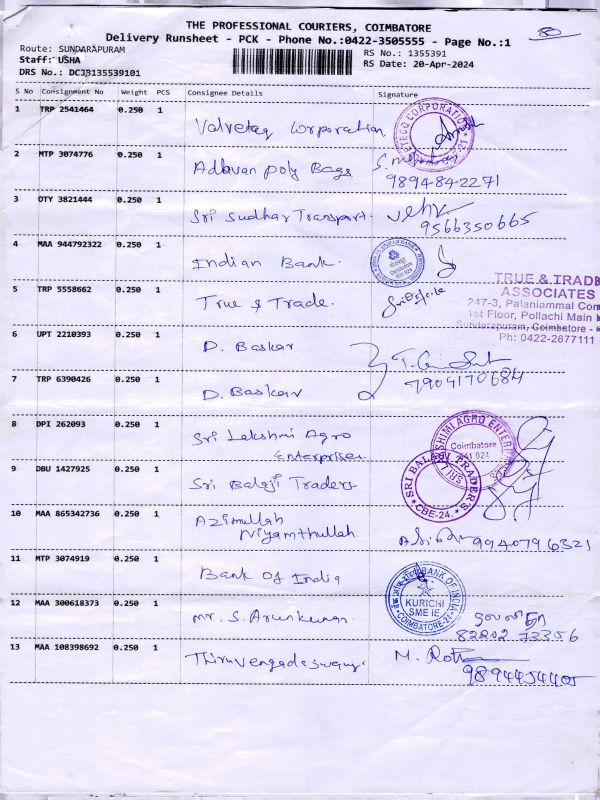 THE PROFESSIONAL COURIERS, COIMBATORE
Delivery Runsheet - PCK - Phone No.:0422-3505555 - Page No.:1
80
Route: SUNDARAPURAM
RS No.: 1355391
Staff: USHA
RS Date: 20-Apr-2024
DRS No.: DCJB135539101
S No Consignment No Weight PCS Consignee Details Signature
1 TRP 2541464 0.250 1 Valvetaq Corporation
2 MTP 3074776 0.250 1 Adhavan Poly Bags
9894842271
3 OTY 3821444 0.250 1 Sri Sudhar Transport.
9566350665
4 MAA 944792322 0.250 1 Indian Bank.
5 TRP 5558662 0.250 1 True & Trade.
TRUE & TRADE
ASSOCIATES
247-3, Palaniammal Com
1st Floor, Pollachi Main
Sundarapuram, Coimbatore -
Ph: 0422-2677111
6 UPT 2210393 0.250 1 D. Baskar
7 TRP 6390426 0.250 1 D. Baskar
7904170684
8 DPI 262093 0.250 1 Sri Lakshmi Agro
Enterprises
SHIMI AGRO ENTERP
Coimbatore
641 024
9 DBU 1427925 0.250 1 Sri Balaji Traders
SRI BALAJI TRADER'S
CBE-24.
10 MAA 865342736 0.250 1 Azimullah
Niyamthullah
9940796321
11 MTP 3074919 0.250 1 Bank of India
BANK OF INDIA
KURICHI
SME IE
COIMBATORE-21
12 MAA 300618373 0.250 1 Mr. S. Arunkumar.
82202 73356
13 MAA 108398692 0.250 1 Thiruvengadaswamy.
M.